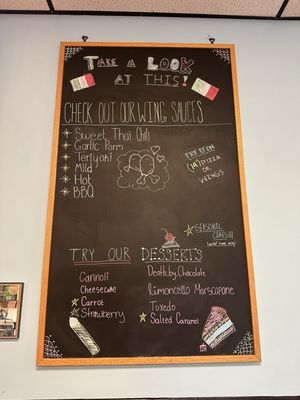 TAKE A LOOK
AT THIS!
CHECK OUT OUR WING SAUCES!
* Sweet Thai Chili
* Garlic Parm
* Teriyaki
* Mild
* Hot
* BBQ
TRY THEM
PIZZA
OR
WINGS
SEASONAL
CAKES!!!
TRY OUR DESSERTS
Cannoli
Cheesecake
Carrot
Strawberry
Death by Chocolate
Limoncello Marscapone
Tuxedo
Salted Caramel